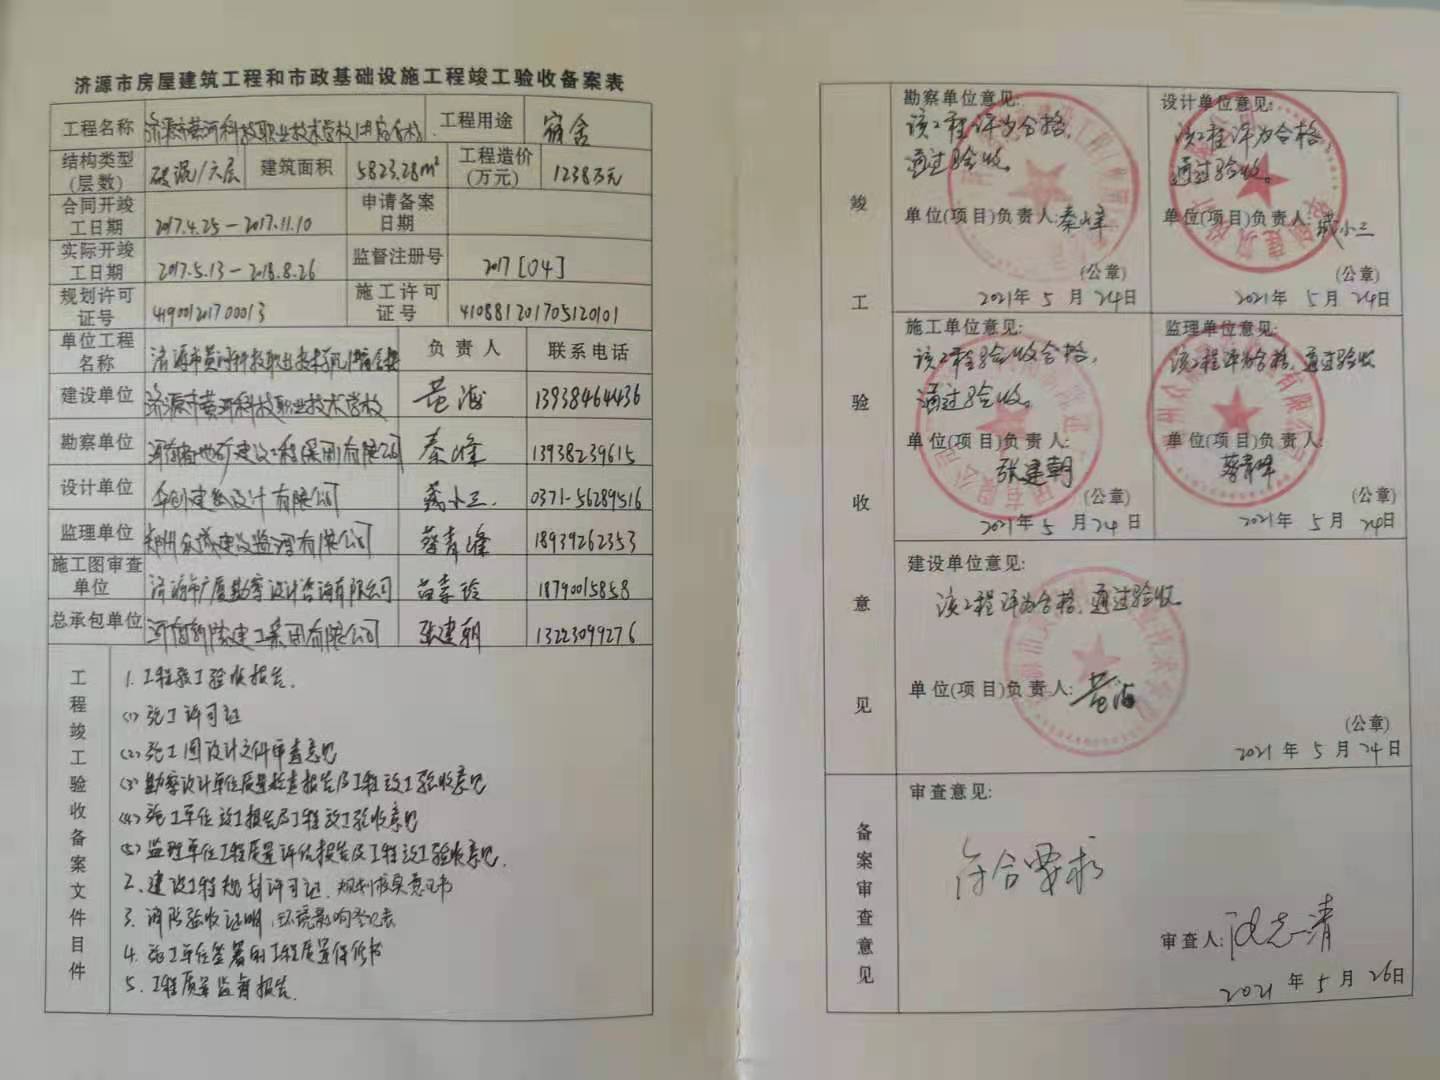 济源市房屋建筑工程和市政基础设施工程竣工验收备案表
工程名称 济源市黄河科技职业技术学校 工程用途 宿舍
结构类型(层数) 砖混/六层 建筑面积 5823.28m² 工程造价(万元) 1238万元
合同开竣工日期 2017.4.25－2017.11.10 申请备案日期
实际开竣工日期 2017.5.13－2018.8.26 监督注册号 2017[04]
规划许可证号 419001201700013 施工许可证号 410881201705120101
单位工程名称 济源市黄河科技职业技术学校 负责人 联系电话
建设单位 济源市黄河科技职业技术学校 黄海 13938464436
勘察单位 河南省地矿建设工程(集团)有限公司 秦峰 13938239615
设计单位 华创建筑设计有限公司 小三 0371-56289516
监理单位 郑州众诚建设监理有限公司 蔡青峰 18939262353
施工图审查单位 济源市广厦勘察设计咨询有限公司 苗 玲 18790015858
总承包单位 河南 建工集团有限公司 张建朝 13223099276
工程竣工验收备案文件目件
1.工程竣工验收报告.
(1)施工许可证
(2)施工图设计文件审查意见
(3)勘察设计单位质量检查报告及工程竣工验收意见
(4)施工单位竣工报告及工程竣工验收意见
(5)监理单位工程质量评估报告及工程竣工验收意见.
2.建设工程规划许可证.规划核实意见书
3.消防验收证明,环境影响登记表
4.施工单位签署的工程质量保修书
5.工程质量监督报告.
竣工验收意见
勘察单位意见:
该工程评为合格,
通过验收.
单位(项目)负责人:秦峰
(公章)
2021年5月24日
设计单位意见:
该工程评为合格,
通过验收。
单位(项目)负责人: 小三
(公章)
2021年5月24日
施工单位意见:
该工程验收合格,
通过验收.
单位(项目)负责人:
张建朝
(公章)
2021年5月24日
监理单位意见:
该工程评为合格,通过验收
单位(项目)负责人:
蔡青峰
(公章)
2021年5月24日
建设单位意见:
该工程评为合格,通过验收
单位(项目)负责人:黄海
(公章)
2021年5月24日
备案审查意见
审查意见:
符合要求
审查人: 志清
2021年5月26日